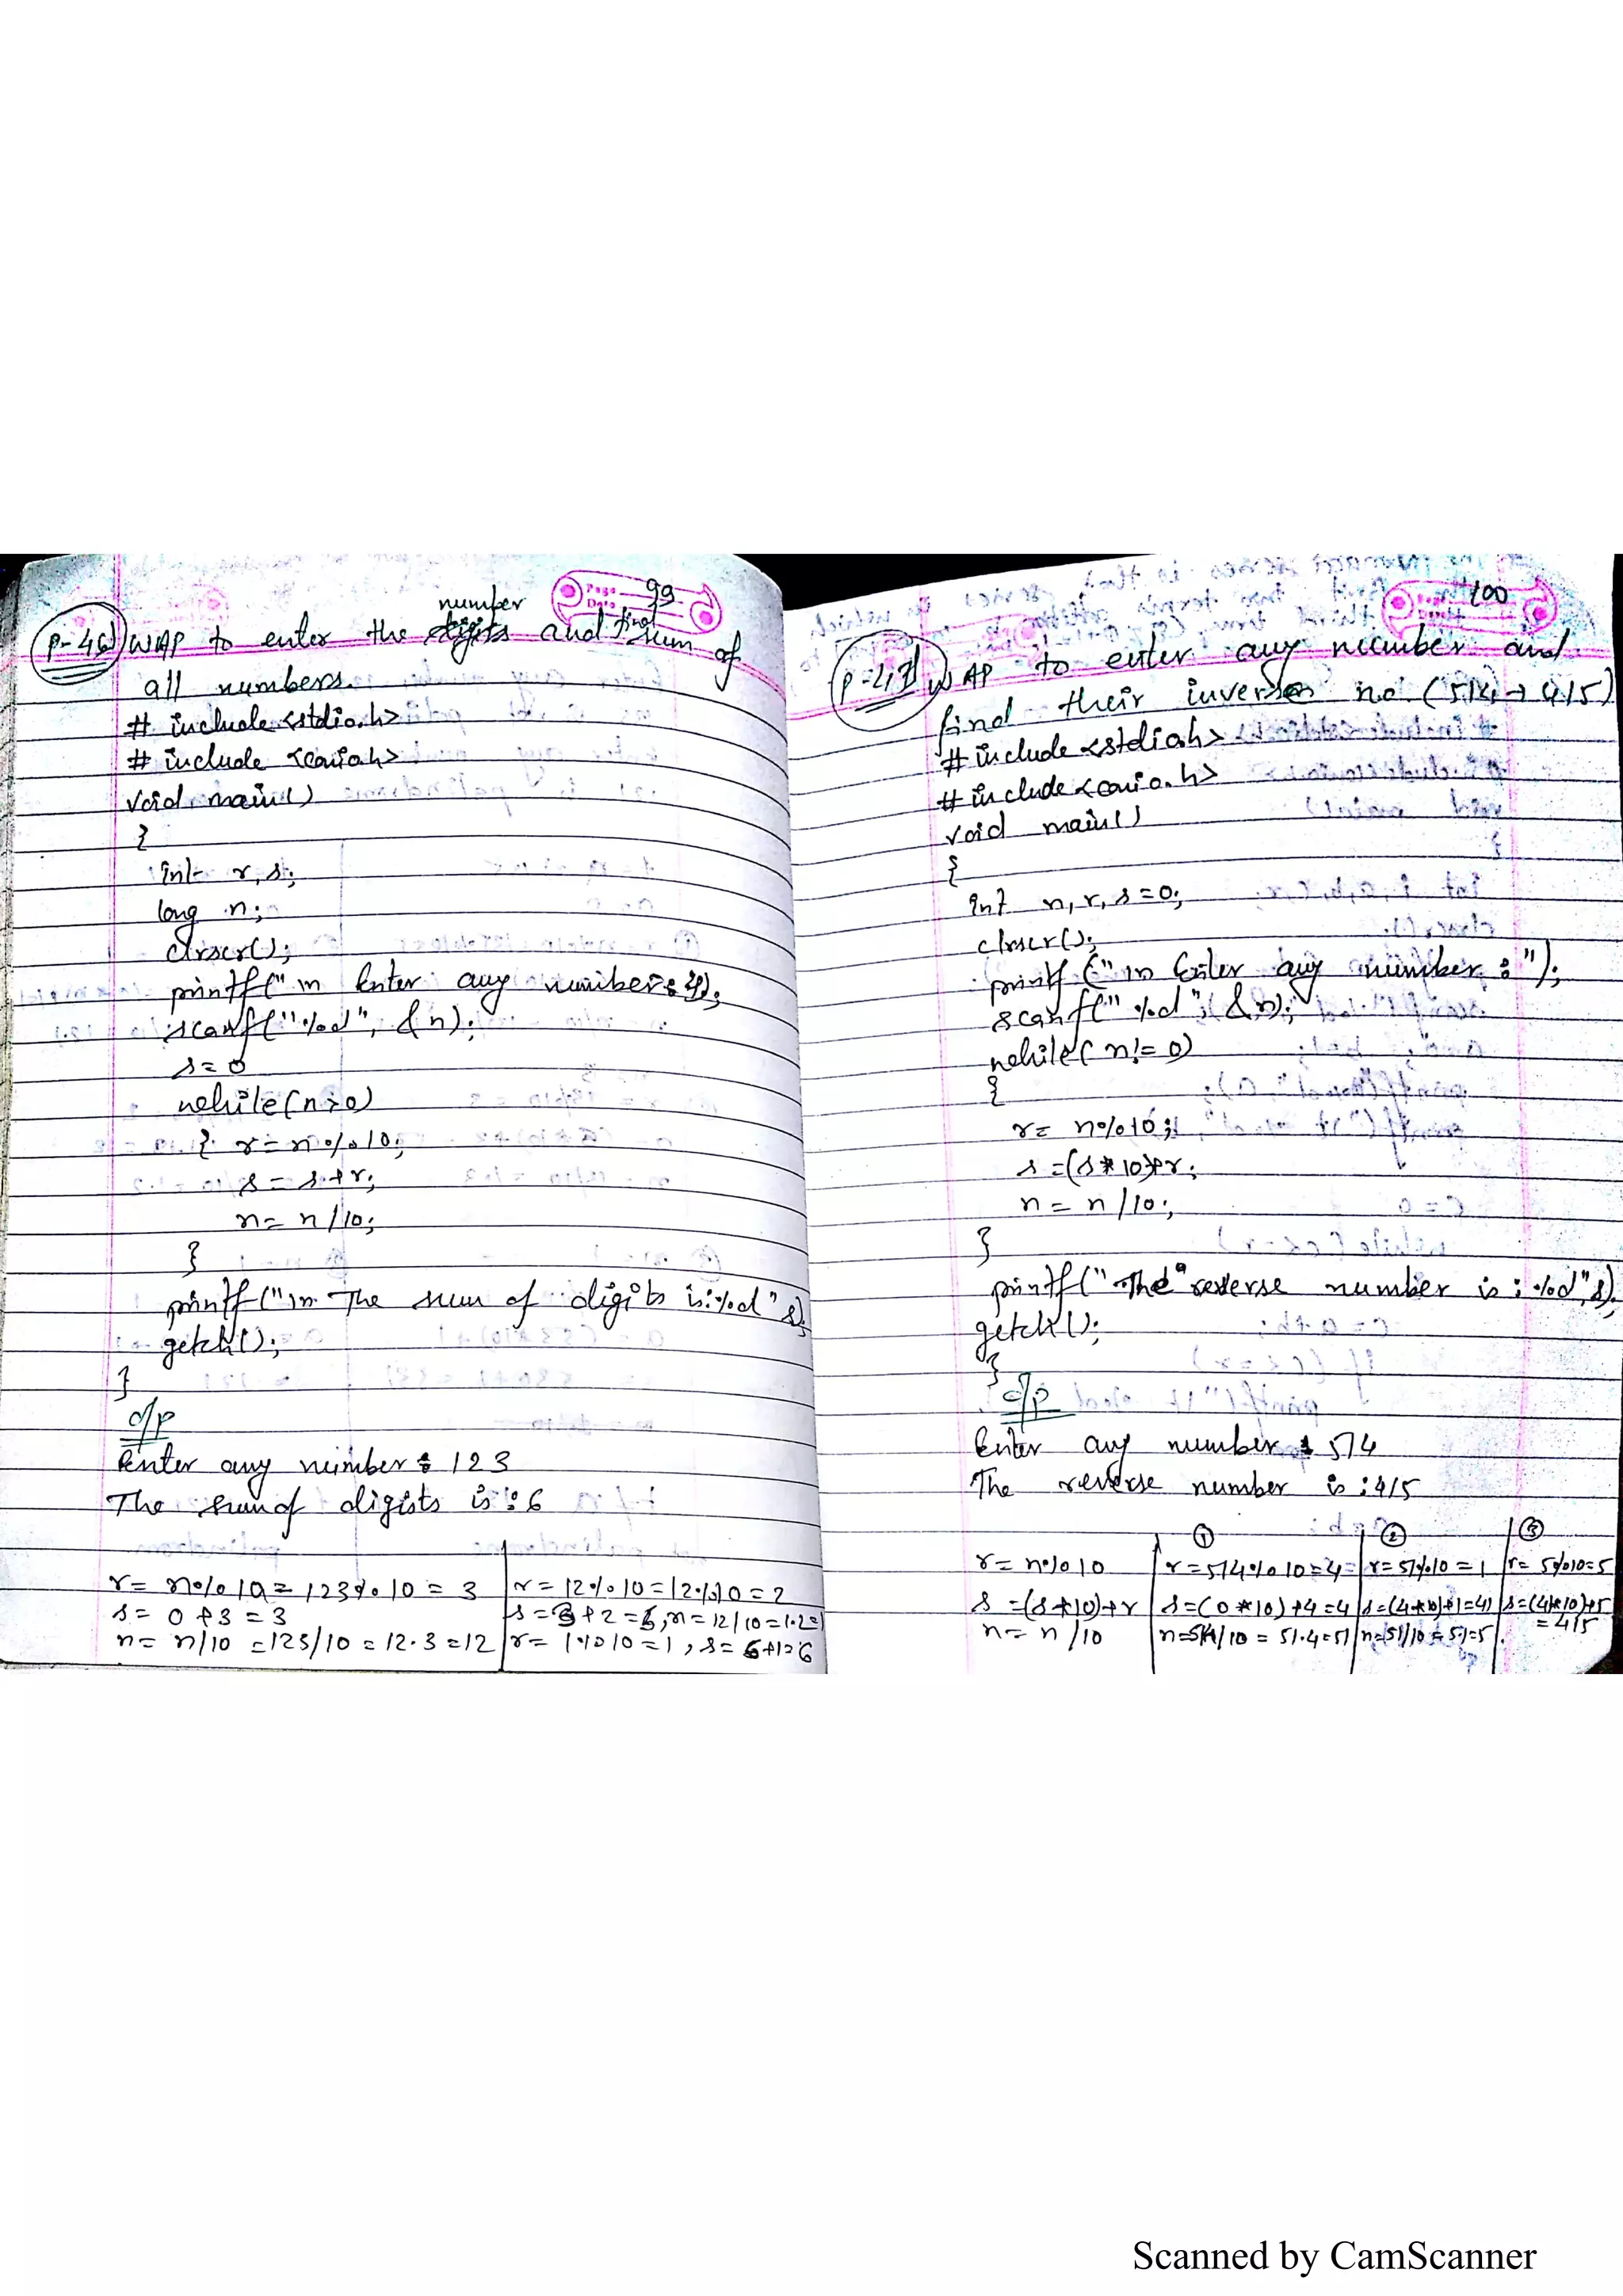 Page 99
Date
number
P-46) WAP to enter the digits and find sum of
all numbers.
# include <stdio.h>
# include <conio.h>
void main()
{
int r, s;
long n;
clrscr();
printf("\n Enter any number: ");
scanf("%d", &n);
s=0
while(n>0)
{ r=n%10;
s=s+r;
n=n/10;
}
printf("\n The sum of digits is:%d" s);
getch();
}
o/p
Enter any number: 123
The sum of digists is: 6
r= n%10= 123%10 = 3
s= 0+3 = 3
n= n/10 =123/10 = 12.3=12
r= 12%10=12%10=2
s=3+2=5, n=12/10=1.2=1
r= 1%10=1, s=5+1=6
Page 100
Date
P-47) WAP to enter any number and
find their inverse no. (514→415)
# include <stdio.h>
# include <conio.h>
void main()
{
int n, r, s=0;
clrscr();
printf("\n Enter any number:");
scanf("%d", &n);
while(n!=0)
{
r= n%10;
s=(s*10)+r;
n= n/10;
}
printf("The reverse number is: %d", s);
getch();
}
o/p
Enter any number: 514
The reverse number is: 415
① ② ③
r= n%10 r=514%10=4 r=51%10=1 r=5%10=5
s=(s*10)+r s=(0*10)+4=4 s=(4*10)+1=41 s=(41*10)+5
= 415
n= n/10 n=514/10=51.4=51 n=51/10=5.1=5
Scanned by CamScanner